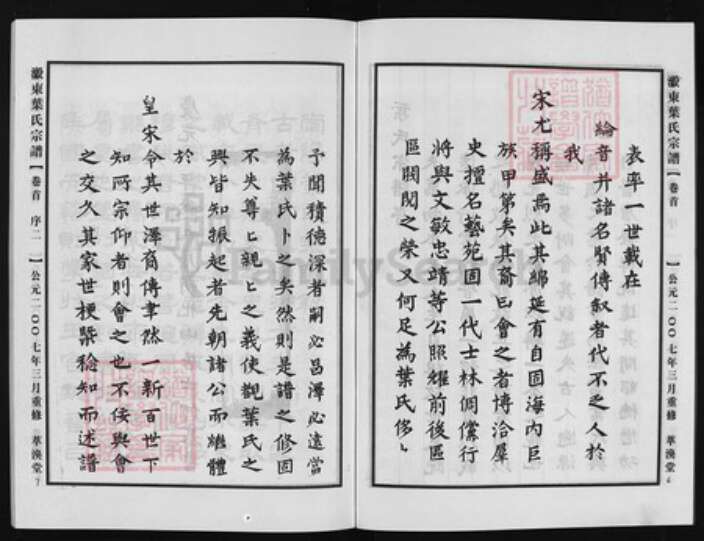 徽東葉氏宗譜【卷首 序 】公元二〇〇七年三月重修 萃渙堂
表率一世載在
綸音井諸名賢傳叙者代不乏人於
我
宋尤稱盛焉此其綿延有自固海內巨
族甲第矣其裔曰會之者博洽羣
史擅名藝苑固一代士林倜儻行
將與文敏忠靖等公照耀前後區
區閥閱之榮又何足為葉氏侈
予聞積德深者嗣必昌澤必遠當
為葉氏卜之矣然則是譜之修固
不失尊尊親親之義使觀葉氏之
興皆知振起者先朝諸公而繼體
於
皇宋令其世澤裔傳聿然一新百世下
知所宗仰者則會之也不佞與會
之交久其家世梗槩稔知而述譜
徽東葉氏宗譜【卷首 序二 】公元二〇〇七年三月重修 萃渙堂
FamilySearch